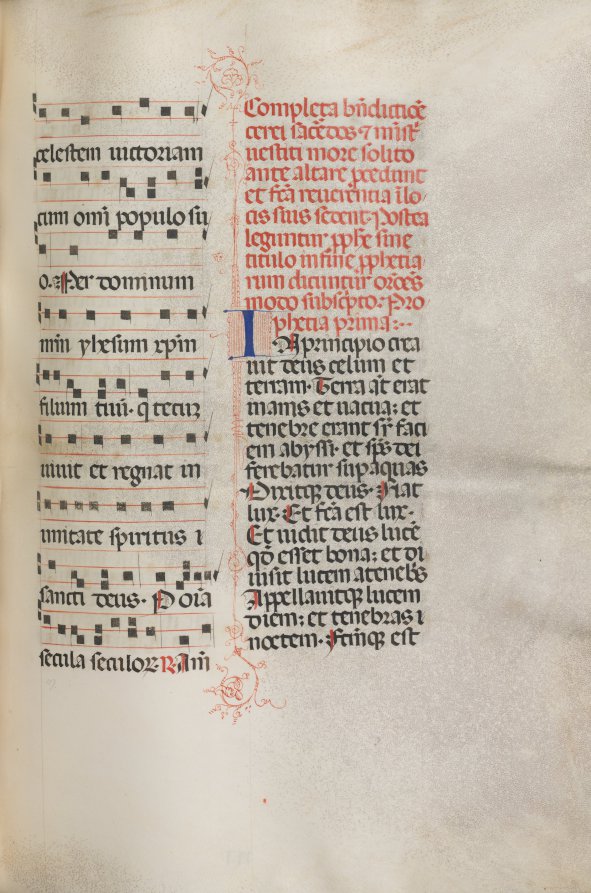 celestem uictoriam
cum om̄i populo su
o. Per dominum
m̄m yhesum xp̄m
filium tuū. q̄ tecuz
uiuit et regnat in
unitate spiritus ſ
sancti deus. P oīa
secula seculoꝝ. R Am̄
Completa bn̄dictiōe
cerei sac̄edos ⁊ minist͛
uestiti more solito
ante altare
et fc̄a reuerētia ī lo
cis suis sedent. Postea
leguntur ꝓph̄e sine
titulo in fine ꝓphetia
rum dicuntur or̄ões
modo subsc̄pto. Pro
phetia prima:
IN principio crea
uit deus celum et
terram. Terra aūt erat
inanis et uacua: et
tenebre erant sr̄ faci
em abyssi. et sp̄s dei
ferebatur sup aquas
Dixitqꝫ deus. Fiat
lux. Et fc̄a est lux.
Et uidit deus lucē
qđ esset bona: et di
uisit lucem a tenebs̄
Appellauitqꝫ lucem
diem: et tenebras
noctem. Fc̄mqꝫ est